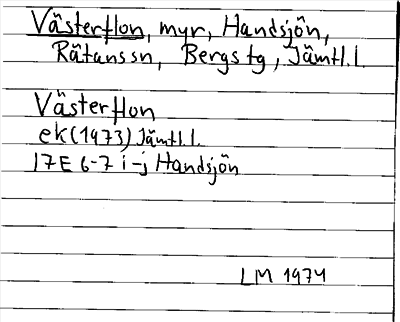 Västerflon, myr, Handsjön,
Rätanssn, Bergstg, Jämtl.l.
Västerflon
ek(1973) Jämtl.l.
17E 6-7 i-j Handsjön
LM 1974